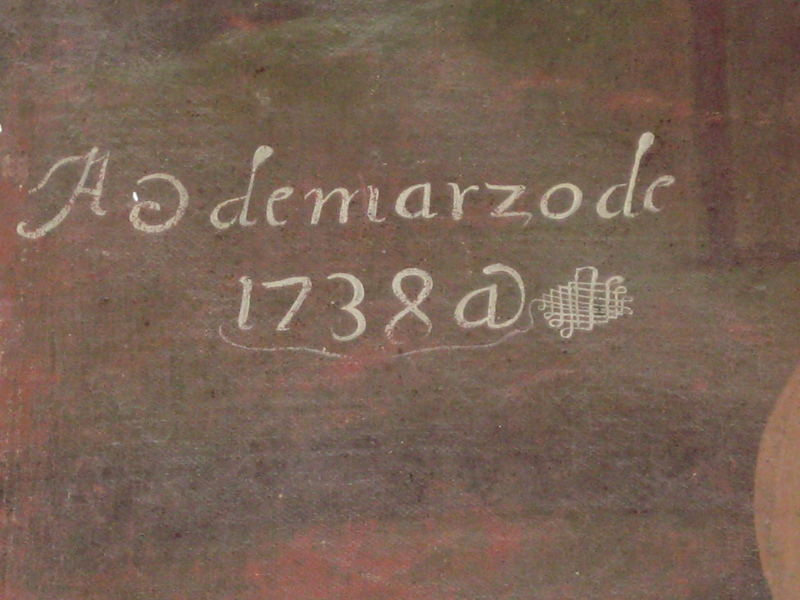 A 9 de marzo de
1738 a